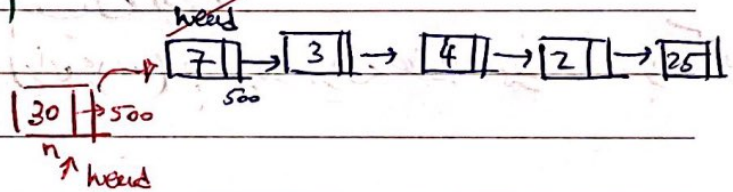 head
7 → 3 → 4 → 2 → 25
500
30 → 500
n ↑ head